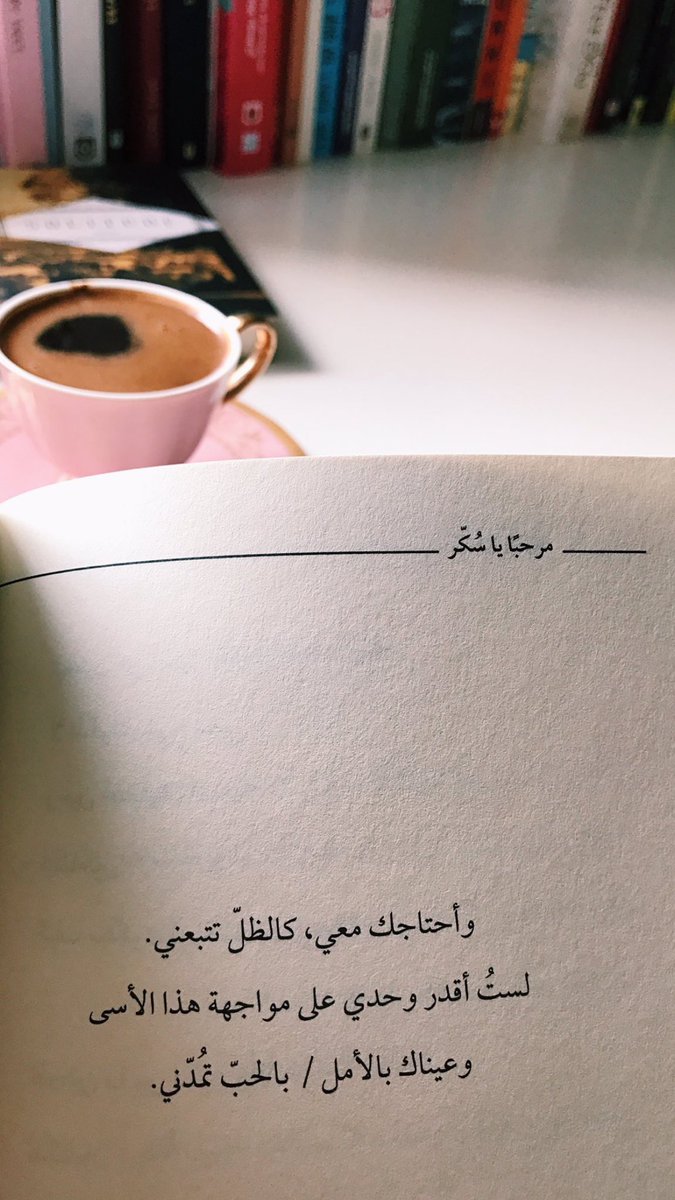 مرحبًا يا سُكّر
وأحتاجك معي، كالظلّ تتبعني.
لستُ أقدر وحدي على مواجهة هذا الأسى
وعيناك بالأمل / بالحبّ تمُدّني.